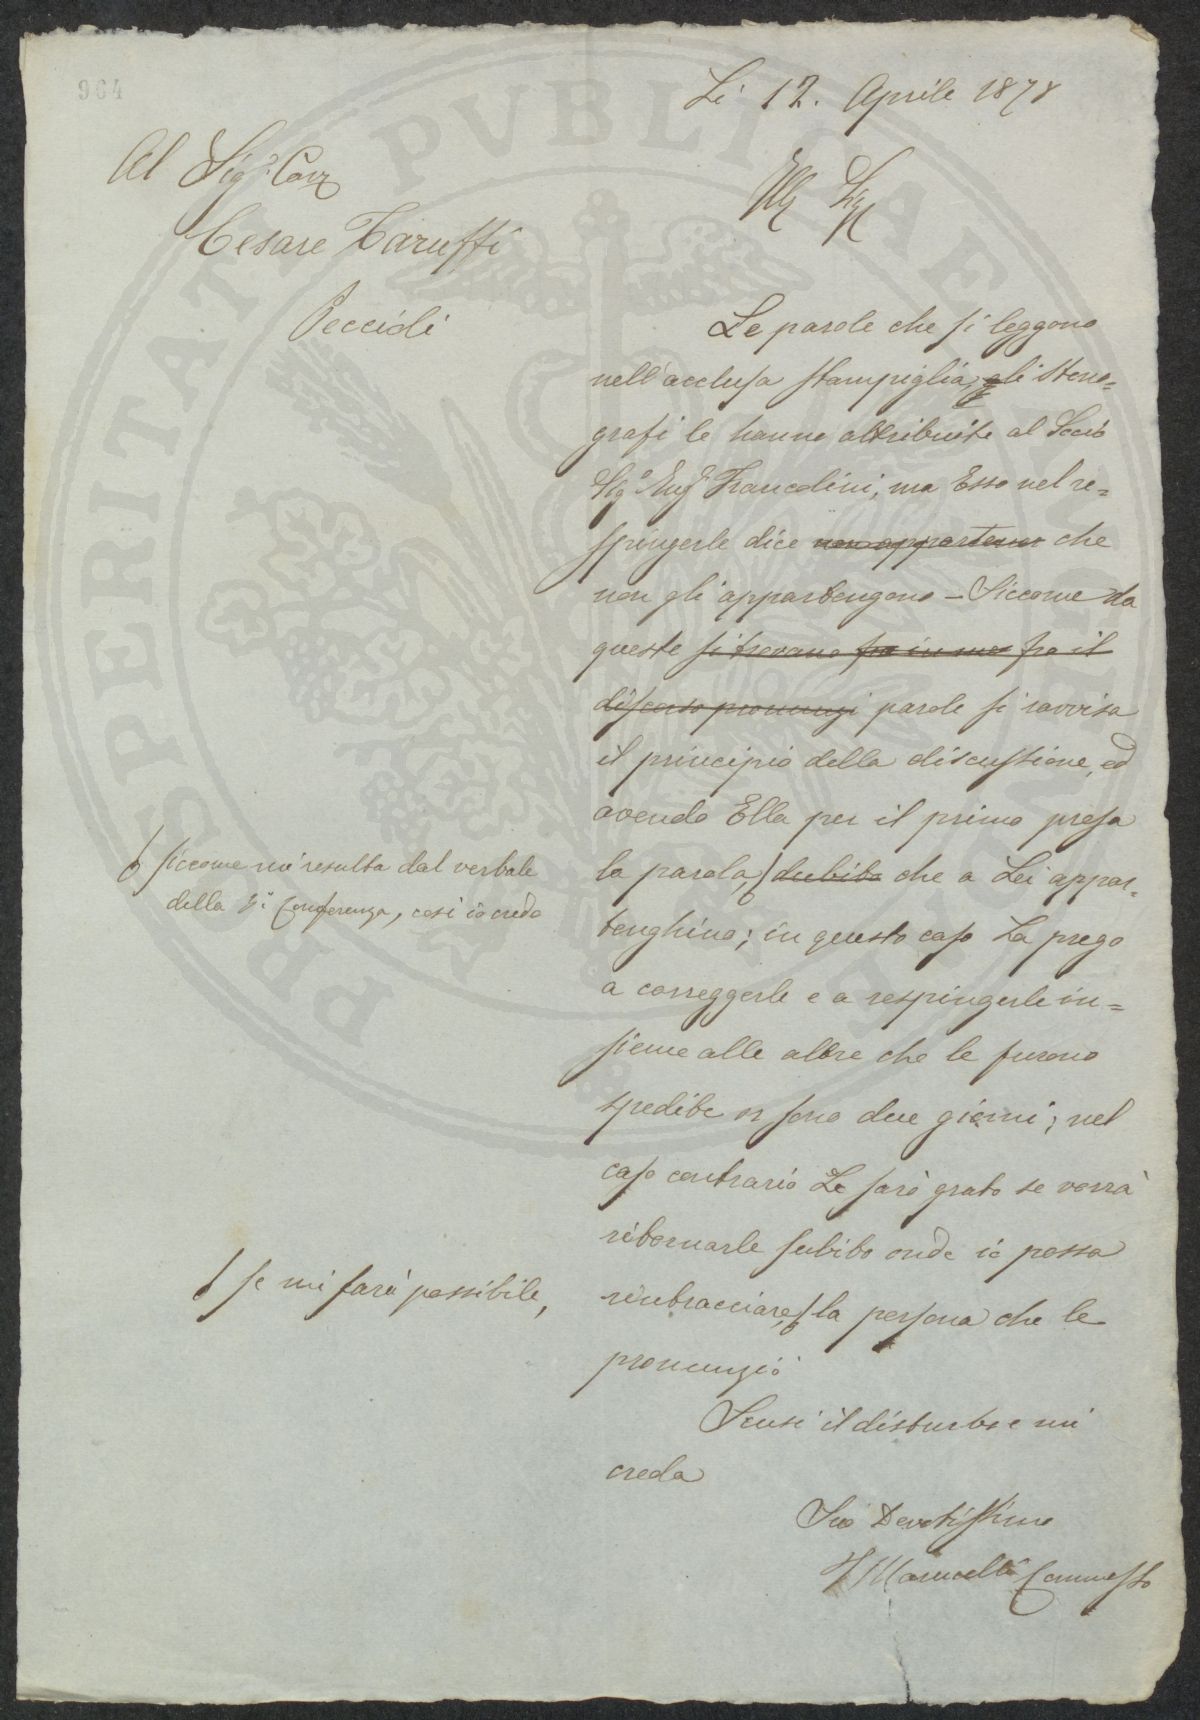 964
Li 12. Aprile 1878
Al Sig.r Cav
Cesare Taruffi
Peccioli
Ill Sig
Le parole che si leggono
nell'acclusa stampiglia, gli steno=
grafi le hanno attribuite al Socio
Sig.r Ing.r Francolini, ma Esso nel re=
spingerle dice non appartener che
non gli appartengono - Siccome da
queste si trovano fra il
discorso pronunzi parole si ravvisa
il principio della discussione, ed
avendo Ella per il primo presa
la parola, dubito che a Lei appar=
tenghino; in questo caso La prego
a correggerle e a respingerle in=
sieme alle altre che le furono
spedite or sono due giorni; nel
caso contrario Le sarò grato se vorrà
ritornarle subito onde io possa
rintracciare, la persona che le
pronunziò
siccome mi resulta dal verbale
della Conferenza, così io credo
se mi sarà possibile,
Scusi il disturbo e mi
creda
Suo Devotissimo
Marucelli Commesso
PROSPERITATI PVBLICAE